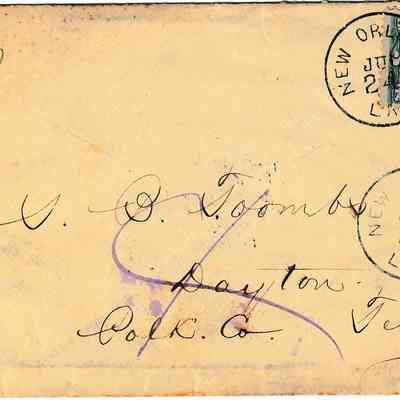 NEW ORL
JU
24
LA
S. B. Toombs
NEW
L
Dayton.
Polk. Co. Te